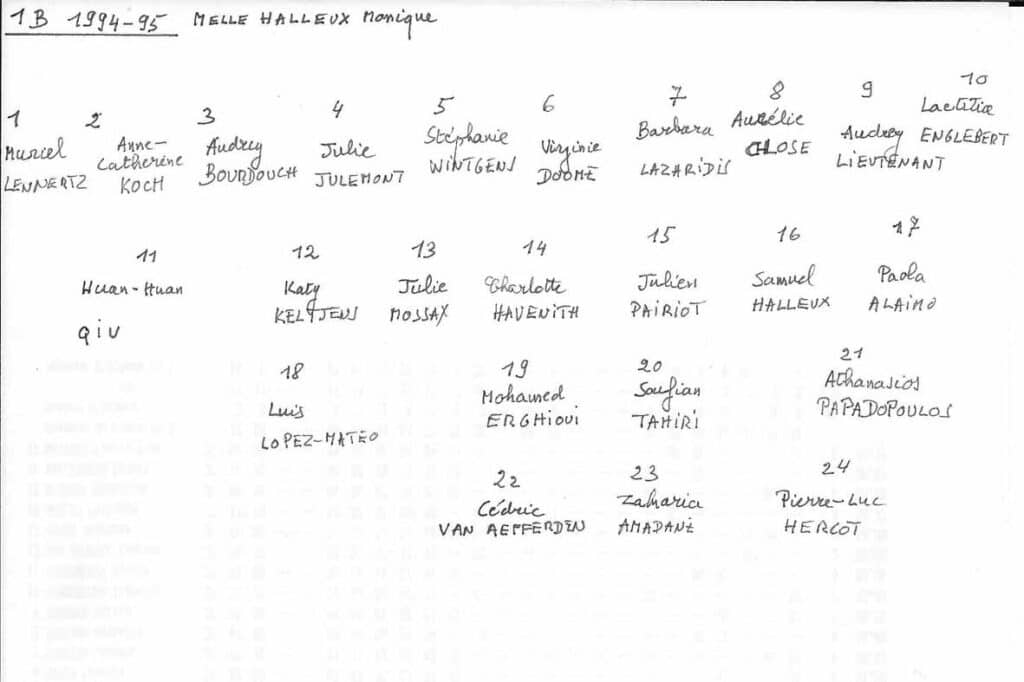 1B 1994-95 MELLE HALLEUX Monique
1 2 3 4 5 6 7 8 9 10
Muriel Anne- Audrey Julie Stéphanie Virginie Barbara Aurélie Audrey Laetitia
LENNERTZ Catherine BOURDOUCH JULEMONT WINTGENS DOOMÉ LAZARIDIS CLOSE LIEUTENANT ENGLEBERT
KOCH
11 12 13 14 15 16 17
Huan-Huan Katy Julie Charlotte Julien Samuel Paola
QIU KELTJENS MOSSAX HAVENITH PAIRIOT HALLEUX ALAIMO
18 19 20 21
Luis Mohamed Soufian Athanasios
LOPEZ-MATEO ERGHIOUI TAHIRI PAPADOPOULOS
22 23 24
Cédric Zakaria Pierre-Luc
VAN AEFFERDEN AMADANE HERCOT